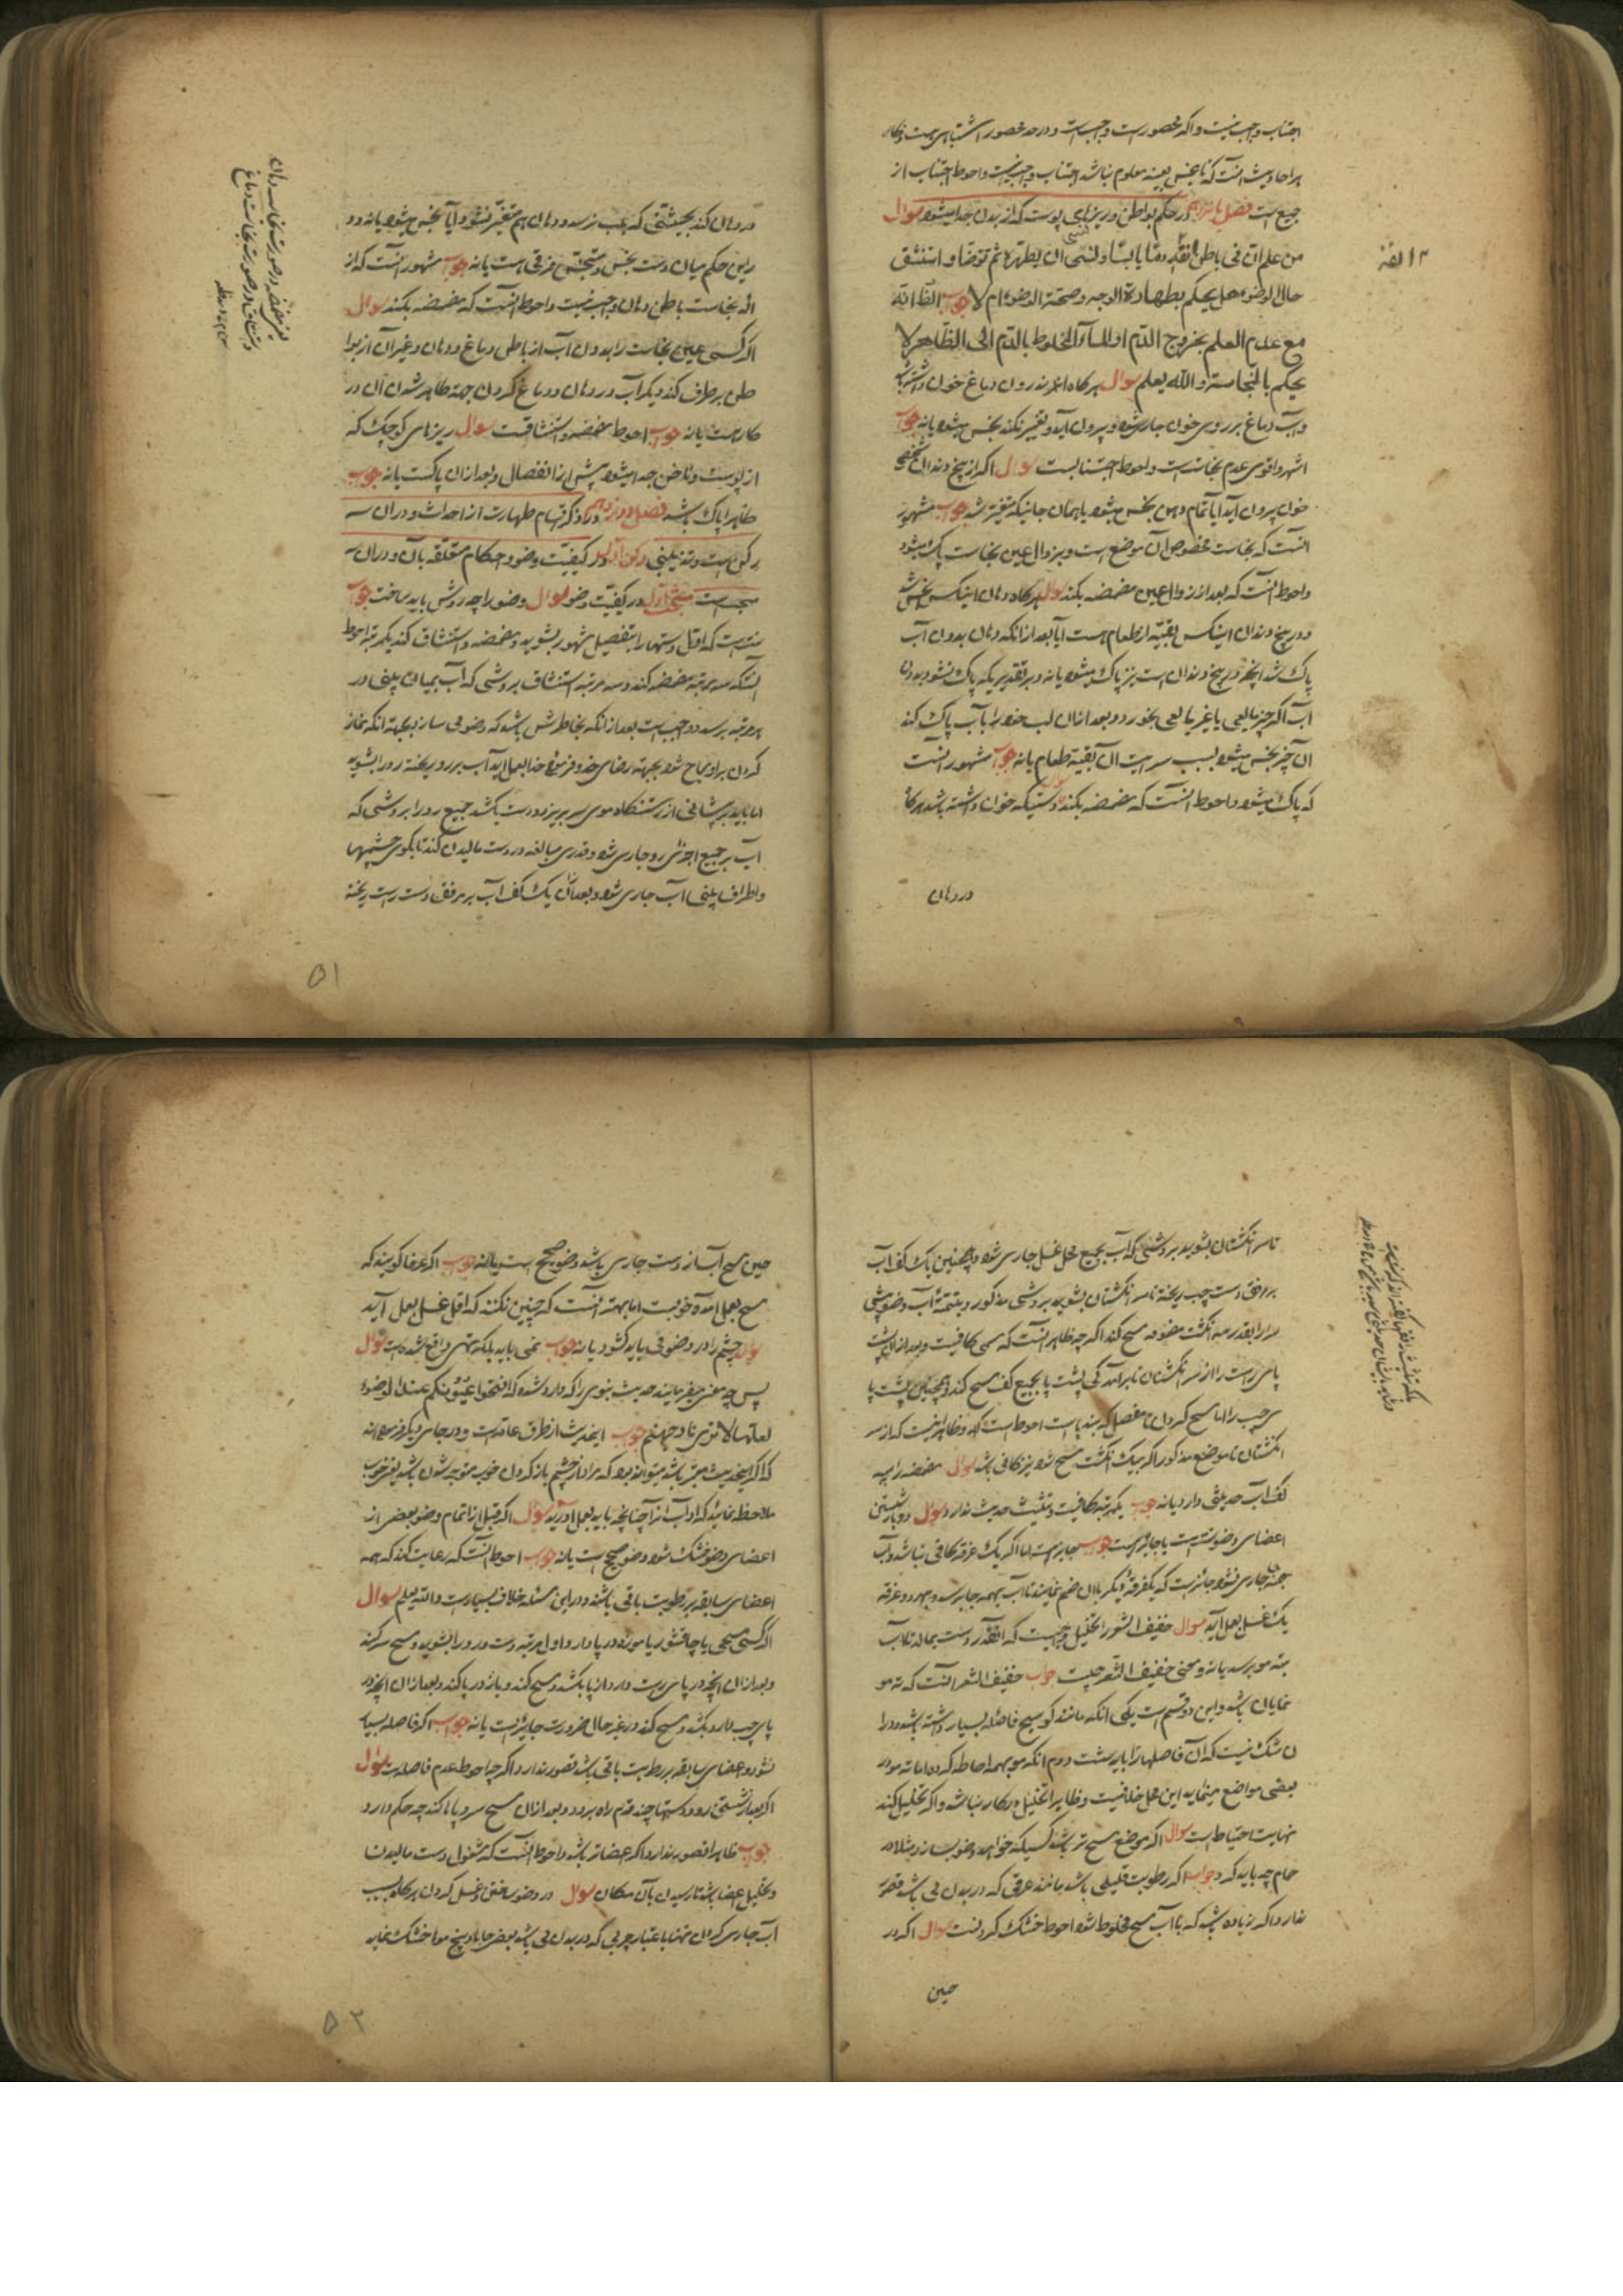 اجتناب واجب نیست و اگر محصور است واجبست و در حد محصور اشتباهی هست و ظاهر
بر احادیث آنست که تا نجس بعینه معلوم نباشد اجتناب واجب نیست و احوط اجتناب از
جمیع است فصل یازدهم در حکم بواطن و ریزهای پوست که از بدن جدا میشود سوال
من علم ان فی باطن انفه دما یابسا و نسی ان یطهره ثم توضا و استنشق
حال الوضوء هل یحکم بطهارة الوجه و صحة الوضوء ام لا جواب الظ انه
مع عدم العلم بخروج الدم او الماء المخلوط بالدم الی الظاهر لا
یحکم بالنجاسة و الله یعلم سوال هر گاه اندرون دماغ خون داشته باشد
و آب دماغ بر روی خون جاری شود و بیرون آید و تغییر نکند نجس میشود یا نه جواب
اشهر و اقوی عدم نجاست است و احوط اجتنابست سوال اگر از بیخ دندان شخصی
خون بیرون آید آیا تمام دهن نجس میشود یا همان جائیکه متغیر شد جواب مشهور
آنست که نجاست مخصوص آن موضع است و بزوال عین نجاست پاک میشود
و احوط آنست که بعد از زوال عین مضمضه بکند سوال هر گاه دهان اینکس نجس باشد
و در بیخ دندان اینکس بقیه از طعام هست آیا بعد از آنکه دهان بدون آب
پاک شد آنچه در بیخ دندان است نیز پاک میشود یا نه و بر تقدیریکه پاک نشود بدون
آب اگر چیز مایعی یا غیر مایعی بخورد و بعد از آن لب خود را بآب پاک کند
آن چیز نجس میشود بسبب سرایت آن بقیه طعام یا نه جواب مشهور آنست
که پاک میشود و احوط آنست که مضمضه بکند سوال دستیکه خون داشته باشد هر گاه
در دهان
۱۳ الفه
در دهان کند بحیثیتی که بلب نرسد و دهان هم متغیر نشود آیا نجس میشود یا نه و در
این حکم میان دست نجس و متنجس فرقی هست یا نه جواب مشهور آنست که از
اله نجاست باطن دهان واجب نیست و احوط آنست که مضمضه بکند سوال
اگر کسی عین نجاست را بدون آب از باطن دماغ و دهان و غیر آن از بوا
طن بر طرف کند دیگر آب در دهان و دماغ کردن جهة طاهر شدن آن در
کار هست یا نه جواب احوط مضمضه و استنشاقست سوال ریزهای کوچک که
از پوست و ناخن جدا میشود پیش از انفصال و بعد از آن پاکست یا نه جواب
ظاهرا پاک باشد فصل دوازدهم در ذکر اقسام طهارت از احداث و در آن سه
رکن است و تذییلی رکن اول در کیفیت وضو و احکام متعلقه بآن و در آن سه
مبحث است مبحث اول در کیفیت وضو سوال وضو را چه روش باید ساخت جواب
سنت است که اول دستها را بتفصیل مشهور بشوید و مضمضه و استنشاق کند یکمرتبه احوط
آنستکه سه مرتبه مضمضه کند و سه مرتبه استنشاق بروشی که آب بمیان بینی در
هر مرتبه برسد و واجب است بعد از آنکه بخاطرش باشد که وضو می سازد بجهة آنکه نماز
کردن بر او مباح شود بجهة رضای خدا و فرموده خدا بعمل آید آب بر رو ریخته رو را بشوید
اما باید بر پیشانی از رستنگاه موی سر بریزد و دست بکشد جمیع رو را بروشی که
آب بر جمیع اجزای رو جاری شود و قدری مبالغه در دست مالیدن کند تا بگوی چشمها
و اطراف بینی آب جاری شود و بعد از آن یک کف آب بر مرفق دست راست ریخته
۵۱
تا سر انگشتان بشوید بروشی که آب بجمیع محل غسل جاری شود و همچنین یک کف آب
بر مرفق دست چپ ریخته تا سر انگشتان بشوید بروش مذکور و بتتمه آب وضو پیش
سر را بقدر سه انگشت مضمومه مسح کند اگر چه ظاهر آنست که مسمی کافیست و بعد از آن پشت
پای راست را از سر انگشتان تا برآمدگی پشت پا بجمیع کف مسح کند و همچنین پشت پا
ی چپ را اما مسح کردن تا مفصل که بند پا است احوط است و ظاهر نیست که از سر
انگشتان تا موضع مذکور اگر بیک انگشت مسح شود نیز کافی باشد سوال مضمضه را بسه
کف آب حدیثی دارد یا نه جواب یکمرتبه کافیست و تثلیث حدیث ندارد سوال دو بار شستن
اعضای وضو سنت است یا جایز است جواب جایز است اما اگر یک غرفه کافی نباشد و آب
بهمه جاری نشود جائز است که یکغرفه دیگر بآن ضم نمایند تا آب بهمه جا برسد و بهر دو غرفه
یک غسل بعمل آید سوال خفیف الشعر را تخلیل واجبست که آنقدر دست بمالد تا آب
بته مو برسد یا نه و معنی خفیف الشعر چیست جواب خفیف الشعر آنست که ته مو
نمایان باشد و این دو قسم است یکی آنکه مانند کوسج فاصله بسیار داشته باشد و در ا
ن شک نیست که آن فاصلها را باید شست دوم آنکه مو بهمه احاطه کرده اما ته مو در
بعضی مواضع مینماید این محل خلافیست و ظاهرا تخلیل در کار نباشد و اگر تخلیل کند
نهایت احتیاط است سوال اگر موضع مسح تر باشد کسیکه خواهد وضو بسازد مثلا در
حمام چه باید کرد جواب اگر رطوبت قلیلی باشد مانند عرقی که در بدن می باشد قصور
ندارد و اگر زیاده باشد که با آب مسح مخلوط شود احوط خشک کردنست سوال اگر در
حین
حین مسح آب از دست جاری باشد وضو صحیح است یا نه جواب اگر عرفا گویند که
مسح بعمل آمده خوبست اما بهتر آنست که چنین نکنند که اقل غسل بعمل آید
سوال چشم را در وضو می باید گشود یا نه جواب نمی باید بلکه نهی واقع شده است سوال
پس چه معنی میفرمایند حدیث نبوی را که وارد شده که افتحوا عیونکم عند الوضوء
لعلها لا تری نار جهنم جواب این حدیث از طرق عامه است و در جای دیگر فرموده اند
که اگر این حدیث معتبر باشد میتواند بود که مراد از چشم باز کردن خوب متوجه شدن باشد یعنی خوب
ملاحظه نمائید که آداب آنرا چنانچه باید بعمل آورید سوال اگر قبل از اتمام وضو بعضی از
اعضای وضو خشک شود وضو صحیح است یا نه جواب احوط آنست که رعایت کند که همه
اعضای سابقه بر رطوبت باقی باشند و در این مسئله خلاف بسیار است و الله یعلم سوال
اگر کسی مسحی یا چاقشور یا موزه در پا دارد اول مرتبه دست و رو را بشوید و مسح سر کند
و بعد از آن آنچه در پای راست دارد از پا بکشد و مسح کند و باز در پا کند و بعد از آن آنچه در
پای چپ دارد بکشد و مسح کند در غیر حال ضرورت جایز است یا نه جواب اگر فاصله بسیار
نشود و اعضای سابقه بر رطوبت باقی باشد قصور ندارد اگر چه احوط عدم فاصله است سوال
اگر بعد از شستن رو و دستها چند قدم راه برود و بعد از آن مسح سر و پاها کند چه حکم دارد
جواب ظاهرا قصور ندارد اگر اعضا تر باشد و احوط آنست که مشغول دست مالیدن
و تخلیل اعضا باشد تا رسیدن بآن مکان سوال در وضو ساختن و غسل کردن هر گاه بسبب
آب جاری کردن تنها باعتبار چربی که در بدن می باشد بعضی جاها در بیخ موها خشک نماید
۵۲